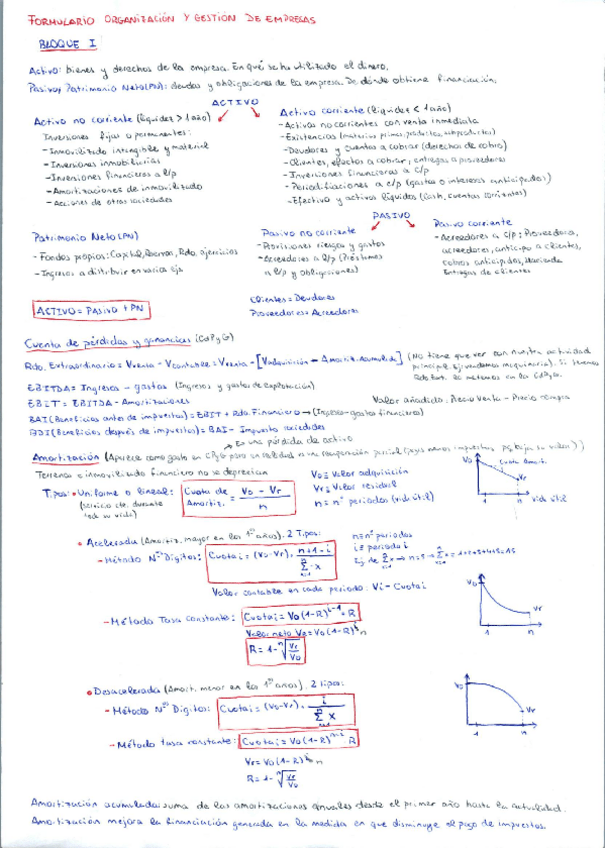 FORMULARIO ORGANIZACIÓN Y GESTIÓN DE EMPRESAS
BLOQUE I
Activo: bienes y derechos de la empresa. En qué se ha utilizado el dinero.
Pasivo y Patrimonio Neto (PN): deudas y obligaciones de la empresa. De dónde obtiene financiación.
ACTIVO
Activo no corriente (liquidez > 1 año)
Inversiones fijas o permanentes:
- Inmovilizado intangible y material
- Inversiones inmobiliarias
- Inversiones financieras a l/p
- Amortizaciones de inmovilizado
- Acciones de otras sociedades
Activo corriente (liquidez < 1 año)
- Activos no corrientes con venta inmediata
- Existencias (materias primas, productos, subproductos)
- Deudores y cuentas a cobrar (derechos de cobro)
- Clientes, efectos a cobrar, entregas a proveedores
- Inversiones financieras a c/p
- Periodificaciones a c/p (gastos o intereses anticipados)
- Efectivo y activos líquidos (cash, cuentas corrientes)
PASIVO
Patrimonio Neto (PN)
- Fondos propios: Capital, Reservas, Rdo. ejercicios
- Ingresos a distribuir en varios ejs
Pasivo no corriente
- Provisiones riesgos y gastos
- Acreedores a l/p (Préstamos
a l/p y obligaciones)
Pasivo corriente
- Acreedores a c/p: Proveedores,
acreedores, anticipo a clientes,
cobros anticipados, Hacienda
Entregas de clientes
ACTIVO = PASIVO + PN
Clientes = Deudores
Proveedores = Acreedores
Cuenta de pérdidas y ganancias (CdPyG)
Rdo. Extraordinario = Vventa - Vcontable = Vventa - [Vadquisición - Amortiz. Acumulada] (No tiene que ver con nuestra actividad
principal. Ej: vendemos maquinaria). Si
Rdo Ext. lo metemos en la CdPyG.
EBITDA = Ingresos - gastos (Ingresos y gastos de explotación)
EBIT = EBITDA - Amortizaciones
Valor añadido: Precio Venta - Precio compra
BAI (Beneficios antes de impuestos) = EBIT + Rdo. Financiero → (Ingresos - gastos financieros)
BDI (Beneficios después de impuestos) = BAI - Impuesto sociedades
→ Es una pérdida de activo
Amortización (Aparece como gasto en CPyG pero en realidad es una recuperación parcial (pagas menos impuestos pq baja su valor))
Terrenos e inmovilizado financiero no se deprecian
Tipos: • Uniforme o lineal:
(servicio cte. durante
toda su vida)
Cuota de Amortiz. = Vo - Vr / n
Vo = Valor adquisición
Vr = Valor residual
n = nº periodos (vida útil)
Vo
Cuota Amorti.
Vr
1
n
vida útil
• Acelerada (Amortiz. mayor en los 1os años). 2 Tipos:
- Método Nos Dígitos: Cuota i = (Vo - Vr) · n + 1 - i / Σ x
n = nº periodos
i = periodo i
Ej de Σ x → n = 5 → Σ x = 1+2+3+4+5 = 15
Valor contable en cada periodo: Vi - Cuota i
- Método Tasa constante: Cuota i = Vo (1-R)^i-1 · R
Valor neto Vr = Vo (1-R)^n
R = 1 - ⁿ√(Vr/Vo)
Vo
Vr
1
n
• Desacelerada (Amort. menor en los 1os años). 2 tipos:
- Método Nos Dígitos: Cuota i = (Vo - Vr) · i / Σ x
- Método tasa constante: Cuota i = Vo (1-R)^n-i · R
Vr = Vo (1-R)^n
R = 1 - ⁿ√(Vr/Vo)
Vo
Vr
1
n
Amortización acumulada: suma de las amortizaciones anuales desde el primer año hasta la actualidad.
Amortización mejora la financiación generada en la medida en que disminuye el pago de impuestos.